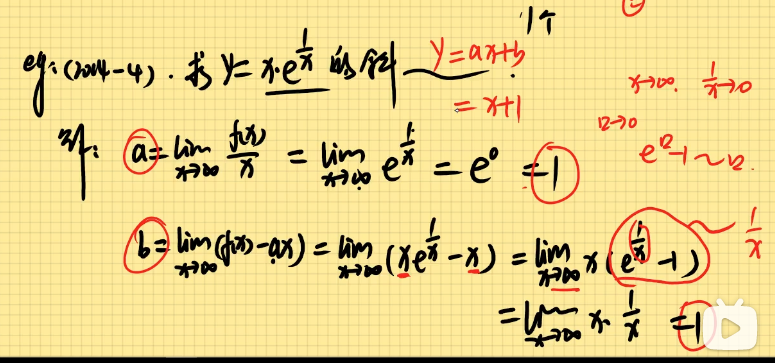 1个
eg: (2004-4). 求 y = x·e^{1/x} 的斜
y = ax+b
= x+1
x→∞. 1/x→0
□→0
e^□-1~□.
a = lim_{x→∞} f(x)/x = lim_{x→∞} e^{1/x} = e^0 = 1
b = lim_{x→∞} (f(x)-ax) = lim_{x→∞} (x e^{1/x} - x) = lim_{x→∞} x(e^{1/x} - 1)
1/x
= lim_{x→∞} x· 1/x = 1